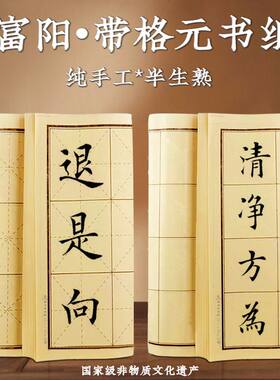 富阳·带格元书纸
纯手工*半生熟
退是向
清净方為
国家级非物质文化遗产